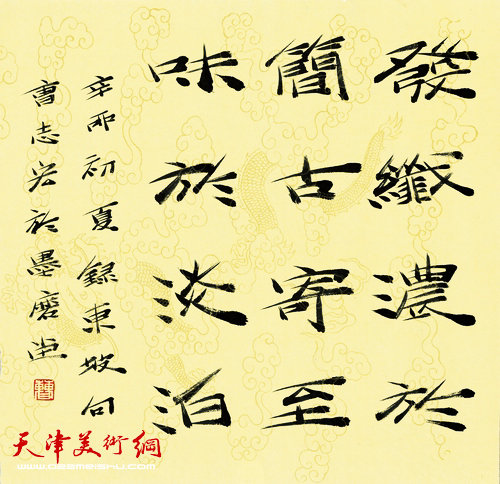 發纖濃於
簡古寄至
味於淡泊
辛卯初夏錄東坡句
曹志宏於墨磨堂
天津美術網
www.022meishu.com